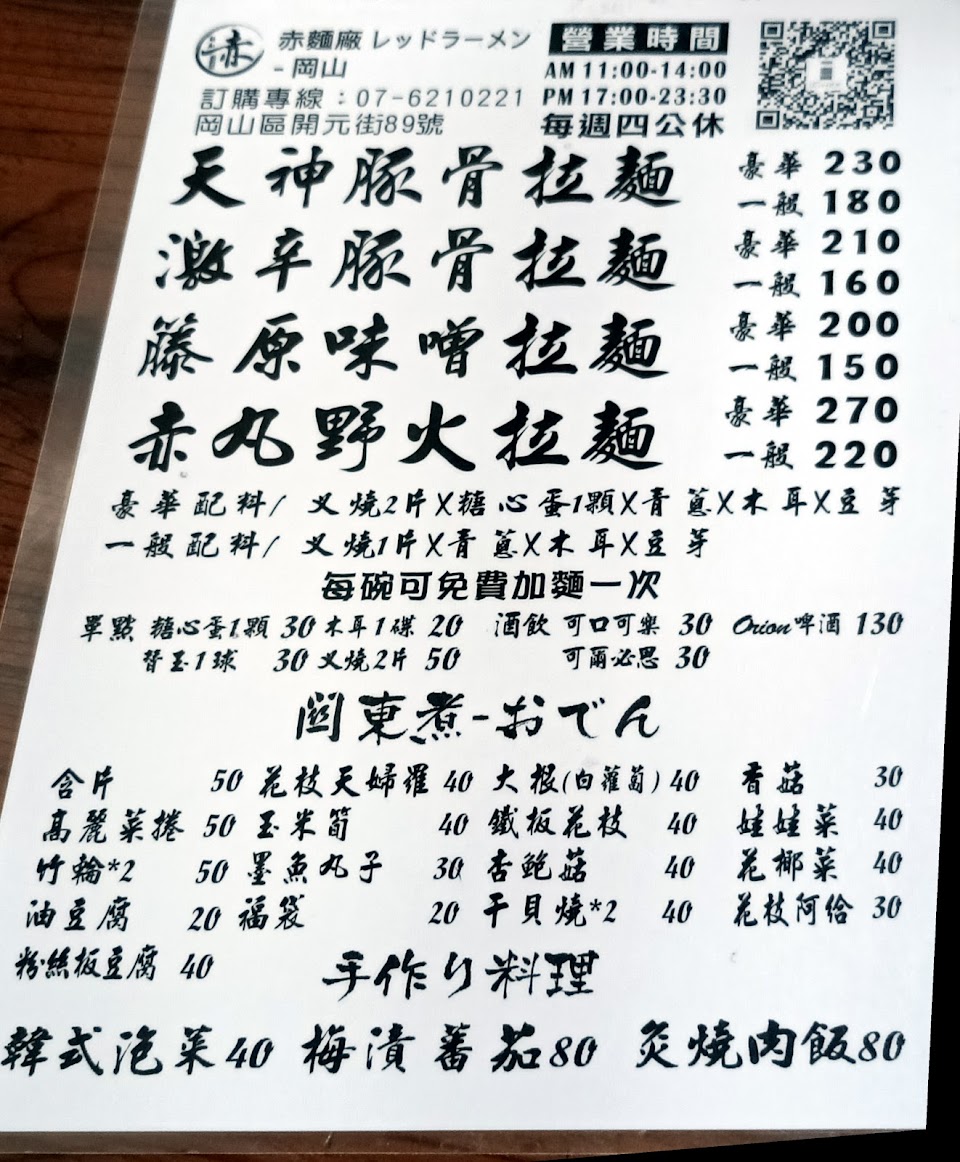 赤
赤麵廠 レッドラーメン
-岡山
訂購專線：07-6210221
岡山區開元街89號
營業時間
AM 11:00-14:00
PM 17:00-23:30
每週四公休
天神豚骨拉麵 豪華 230
一般 180
激辛豚骨拉麵 豪華 210
一般 160
籐原味噌拉麵 豪華 200
一般 150
赤丸野火拉麵 豪華 270
一般 220
豪華配料/ 叉燒2片X糖心蛋1顆X青蔥X木耳X豆芽
一般配料/ 叉燒1片X青蔥X木耳X豆芽
每碗可免費加麵一次
單點 糖心蛋1顆 30 木耳1碟 20 酒飲 可口可樂 30 Orion啤酒 130
替玉1球 30 叉燒2片 50 可爾必思 30
關東煮-おでん
含片 50 花枝天婦羅 40 大根(白蘿蔔) 40 香菇 30
高麗菜捲 50 玉米筍 40 鐵板花枝 40 娃娃菜 40
竹輪*2 50 墨魚丸子 30 杏鮑菇 40 花椰菜 40
油豆腐 20 福袋 20 干貝燒*2 40 花枝阿給 30
粉絲板豆腐 40
手作り料理
韓式泡菜40 梅漬蕃茄80 炙燒肉飯80